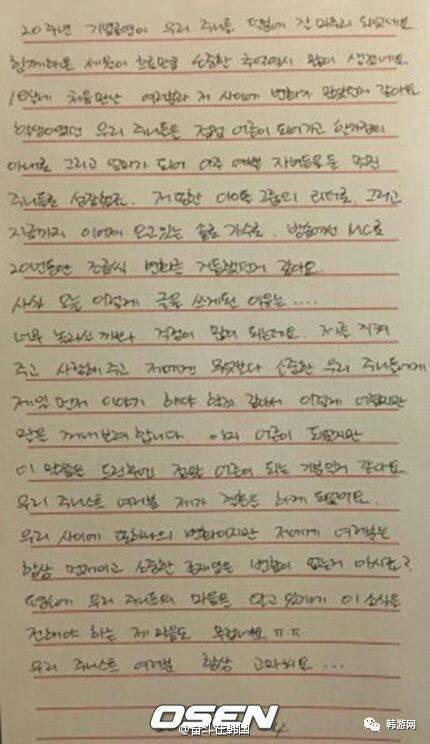 20주년 기념공연이 우리 주니들 덕분에 잘 마무리 되었네요.
함께해온 세월이 흐른만큼 소중한 추억역시 많이 생겼네요.
18살에 처음만난 여러분과 저 사이에 변화가 많았던거 같아요
학생이였던 우리 주니들은 점점 어른이 되어가고 한가정의
아내로 그리고 엄마가 되어 아주 예쁜 자녀들을 둔 멋진
주니들로 성장했죠. 저 또한 아이돌 그룹의 리더로, 그리고
지금까지 이어져 오고있는 솔로 가수로, 방송에선 MC로
20년동안 조금씩 변화를 거듭했던거 같아요.
사실 오늘 이렇게 글을 쓰게된 이유는....
너무 놀라실까봐 걱정이 많이 되는데요. 저를 지켜
주고 사랑해주고 저에겐 무엇보다 소중한 우리 주니들에게
제일 먼저 이야기 해야 할것 같아서 이렇게 어렵지만
말을 꺼내보려 합니다. 이미 어른이 되었지만
이 말씀을 드린후엔 정말 어른이 되는 기분인거 같아요.
우리 주니스트 여러분 제가 결혼을 하게 되었어요.
우리 사이에 또하나의 변화이지만 저에게 여러분은
항상 먼저이고 소중한 존재임은 변함이 없는거 아시죠?
때문에 우리 주니들의 마음을 알고 있기에 이 소식을
전해야 하는 제 마음도 무겁네요 ㅠㅠ
우리 주니스트 여러분 항상 고마워요 ...
OSEN
@奋斗在韩国
韩游网